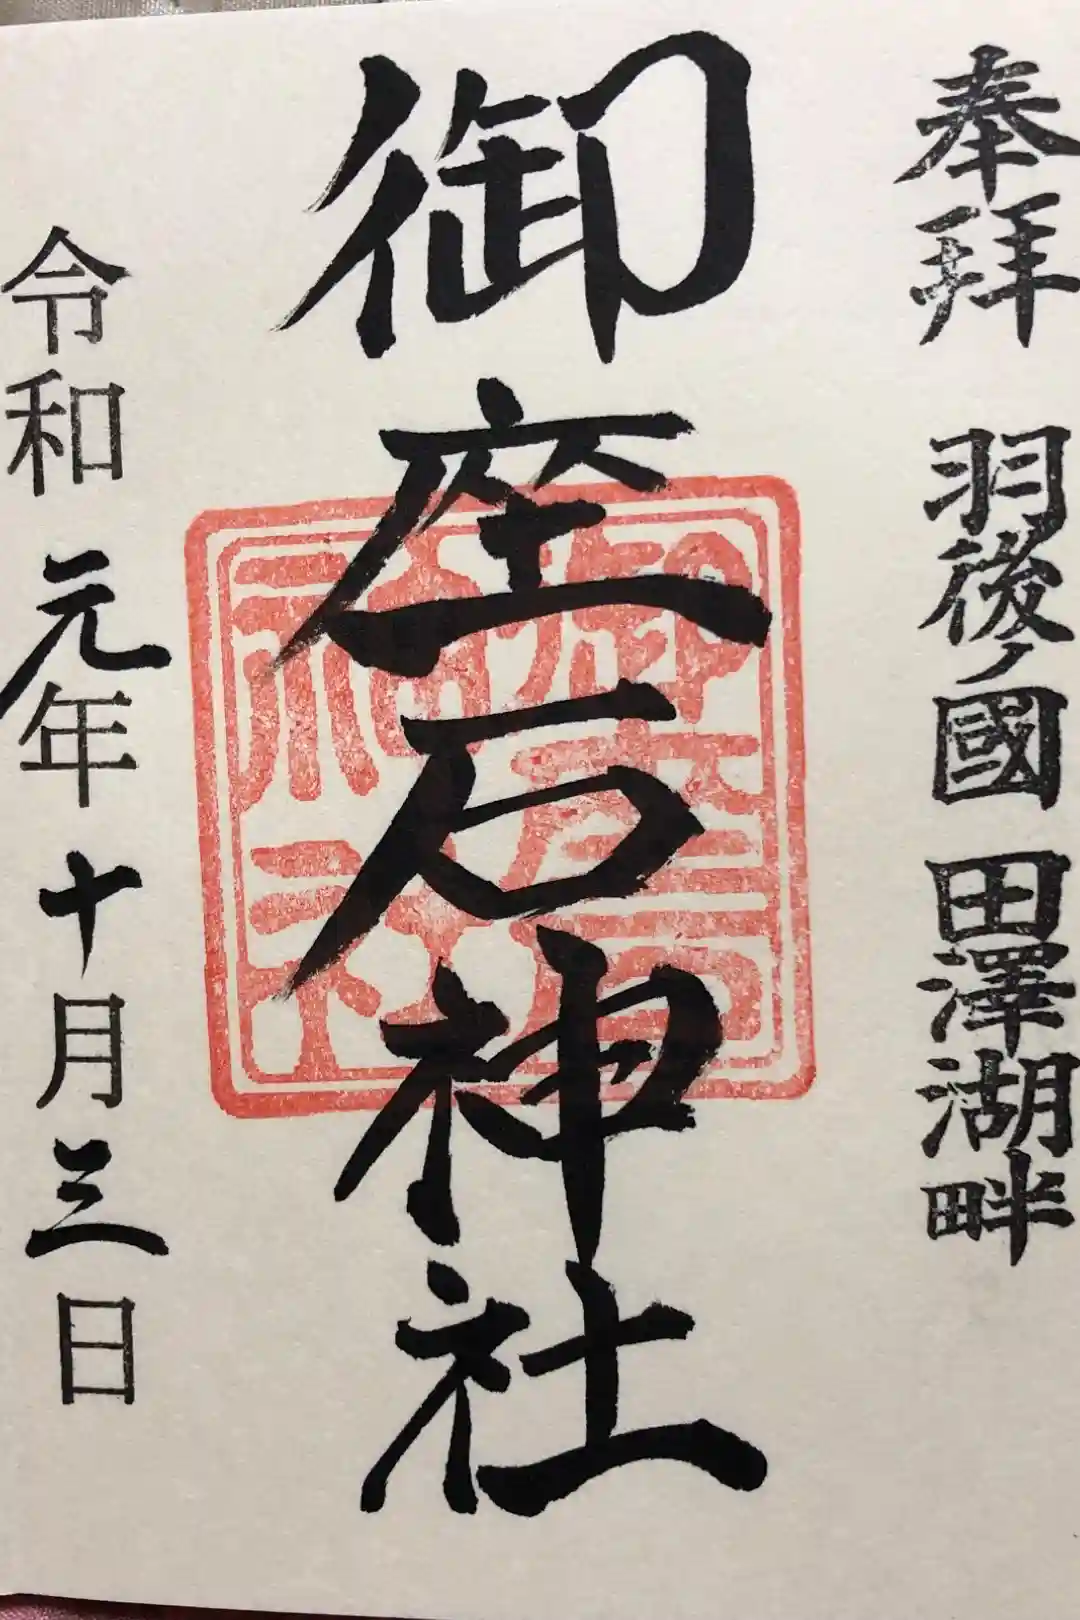 奉拝 羽後ノ國 田澤湖畔
御座石神社
令和元年十月三日
御座石神社